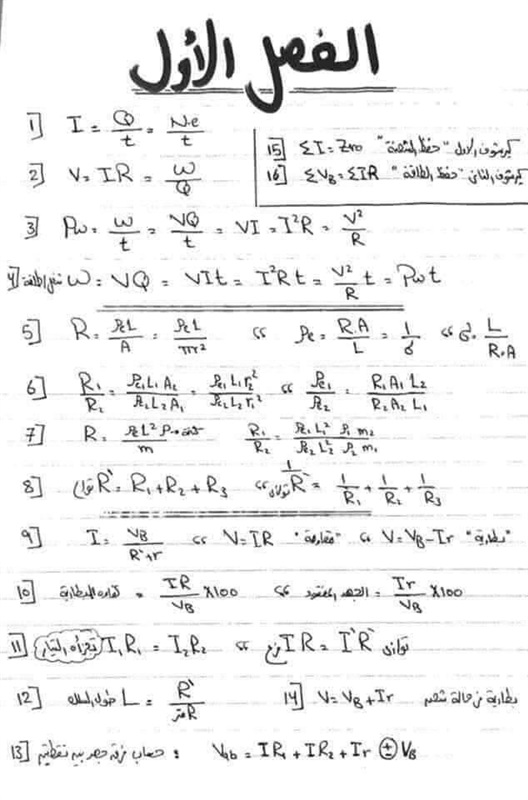 الفصل الأول
1] I = Q/t = Ne/t
15] ΣI = Zero "حفظ الشحنة" كيرشوف الاول
2] V = IR = W/Q
16] ΣV_B = ΣIR "حفظ الطاقة" كيرشوف الثاني
3] Pw = W/t = VQ/t = VI = I²R = V²/R
4] W = VQ = VIt = I²Rt = V²/R t = Pw t
5] R = ρe L/A = ρe L/πr² ،، ρe = R.A/L = 1/σ ،، σ = L/R.A
6] R₁/R₂ = ρe₁L₁A₂/ρe₂L₂A₁ = ρe₁L₁r₂²/ρe₂L₂r₁² ،، ρe₁/ρe₂ = R₁A₁L₂/R₂A₂L₁
7] R = ρe L² ρ → كثافة/m R₁/R₂ = ρe₁L₁² ρ₁ m₂/ρe₂L₂² ρ₂ m₁
8] توالي R` = R₁+R₂+R₃ ،، توازي 1/R` = 1/R₁ + 1/R₂ + 1/R₃
9] I = V_B/R`+r ،، V = IR "مقاومة" ،، V = V_B - Ir "بطارية"
10] كفاءه البطارية = IR/V_B ×100 ،، الجهد المفقود = Ir/V_B ×100
11] تجزأه التيار I₁R₁ = I₂R₂ ،، فرع IR = I`R` توازي
12] طول السلك L = R`/R متر
14] V = V_B + Ir بطارية في حالة شحن
13] حساب فرق جهد بين نقطتين : V_ab = IR₁ + IR₂ + Ir ± V_B